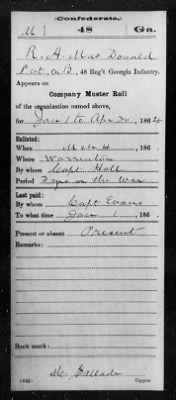 Confederate.
M 48 Ga.
R. A. MacDonald
Pvt, Co B, 48 Reg't Georgia Infantry.
Appears on
Company Muster Roll
of the organization named above,
for Jan 1 to Apr 30, 1864
Enlisted:
When Mch 4, 186
Where Warrenton
By whom Capt Hall
Period 3 yrs or the War
Last paid:
By whom Capt Evans
To what time Jan 1, 186
Present or absent Present
Remarks:
Book mark:
(642) Copyist.